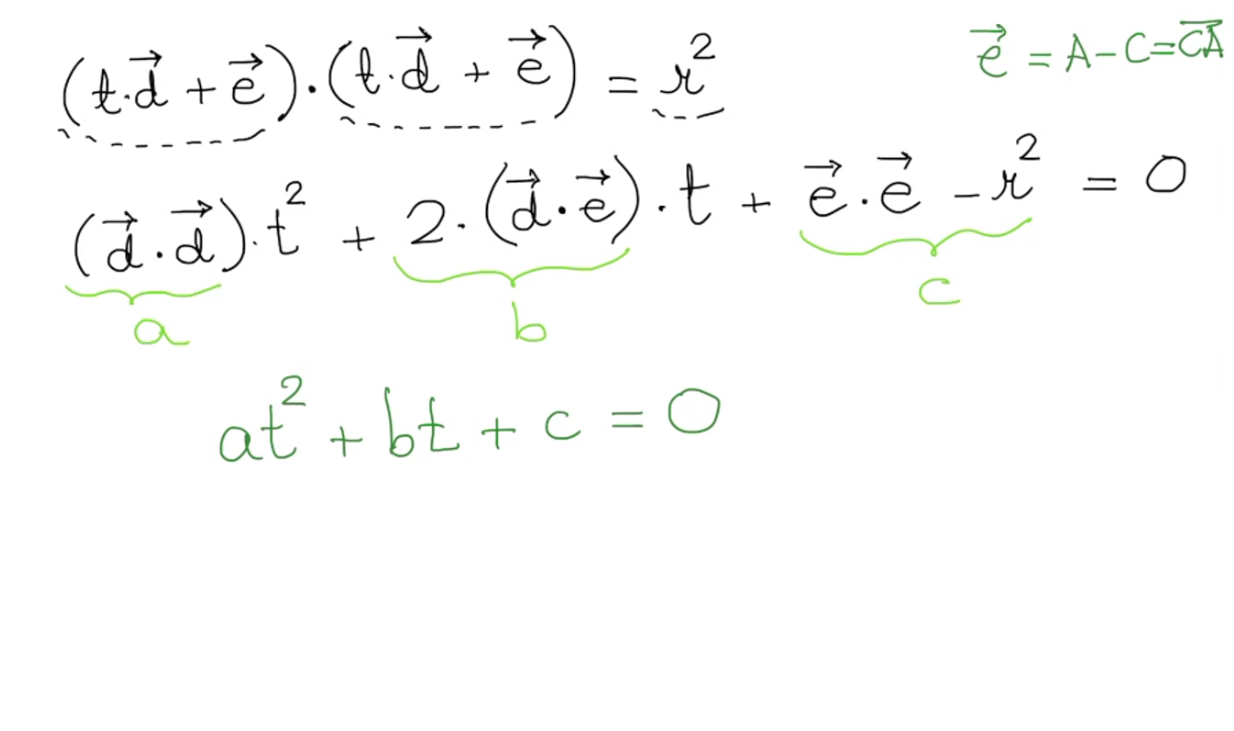 (t·d⃗ + e⃗)·(t·d⃗ + e⃗) = r²
e⃗ = A-C=C͞A⃗
(d⃗·d⃗)·t² + 2·(d⃗·e⃗)·t + e⃗·e⃗ - r² = 0
a b c
at² + bt + c = 0